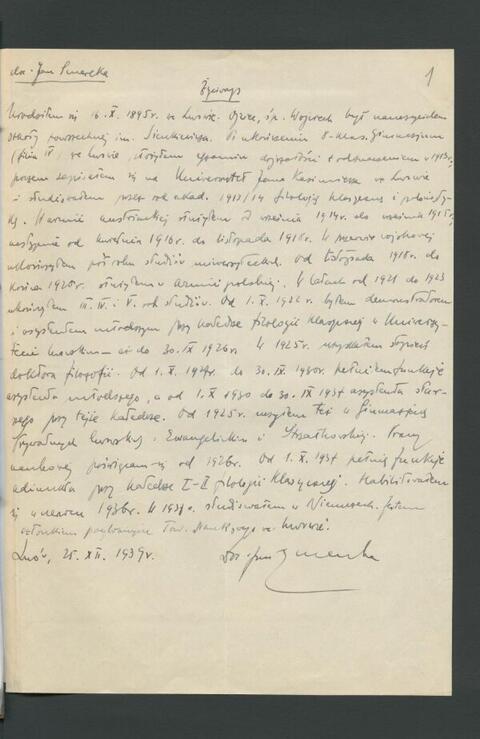 1
dr. Jan Smereka
Życiorys
Urodziłem się 16. X. 1895 r. we Lwowie. Ojciec, śp. Wojciech był nauczycielem
szkoły powszechnej im. Sienkiewicza. Po ukończeniu 8-klas. Gimnazjum
(filia IV) we Lwowie, złożyłem egzamin dojrzałości z odznaczeniem w 1913 r.,
poczem zapisałem się na Uniwersytet Jana Kazimierza we Lwowie
i studiowałem przez rok akad. 1913/14 filologię klasyczną i
W armii austriackiej służyłem od września 1914 r. do września 1915 r.,
następnie od kwietnia 1916 r. do listopada 1918 r. W przerwie wojskowej
ukończyłem pół roku studiów uniwersyteckich. Od listopada 1918 r. do
końca 1920 r. służyłem w armii polskiej. W latach od 1921 do 1923
ukończyłem III, IV i V. rok studiów. Od 1. X. 1922 r. byłem demonstratorem
i asystentem młodszym przy katedrze filologii klasycznej w Uniwersy-
tecie lwowskim aż do 30. IX 1926 r. W 1925 r. uzyskałem stopień
doktora filozofii. Od 1. X. 1927 r. do 30. IX. 1930 r. pełniłem funkcje
asystenta młodszego, a od 1. X 1930 do 30. IX 1937 asystenta star-
szego przy tejże katedrze. Od 1925 r. uczyłem też w Gimnazjach
Prywatnych lwowskich: Ewangelickim i Strzałkowskiej. Pracy
naukowej poświęcam się od 1926 r. Od 1. X. 1937 pełnię funkcje
adiunkta przy katedrze I-II filologii klasycznej. Habilitowałem
się w 1936 r. W 1937 r. studiowałem w Niemczech. Jestem
członkiem Tow. Naukowego we Lwowie.
Lwów, 25. XII. 1939 r. Dr. Jan Smereka